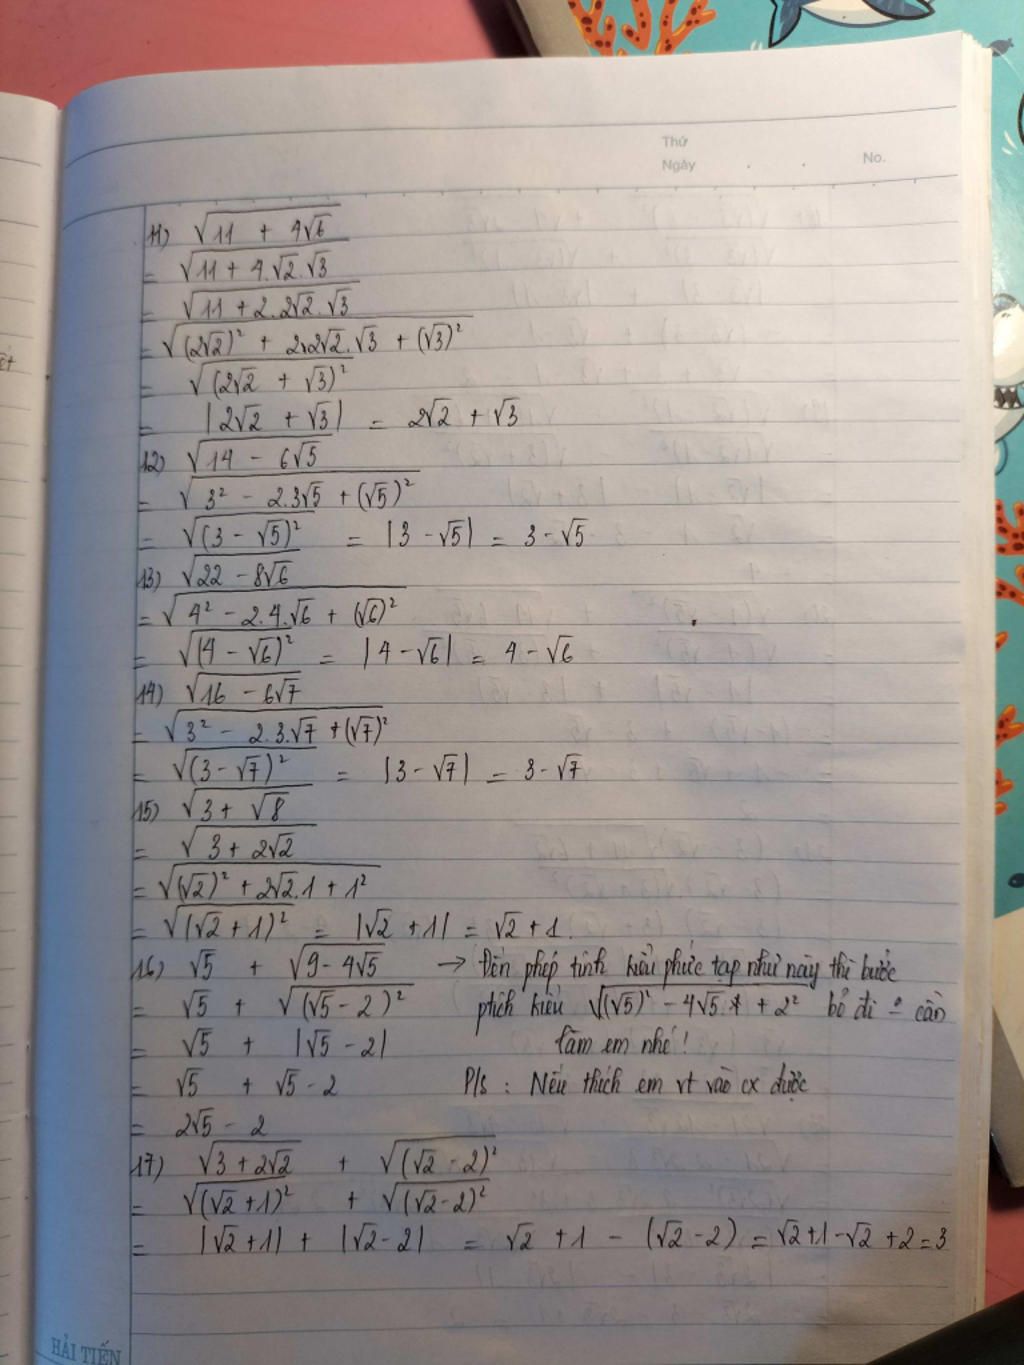 Thứ
Ngày . . No.
11) √(11 + 4√6)
= √(11 + 4.√2.√3)
= √(11 + 2.2√2.√3)
= √((2√2)² + 2.2√2.√3 + (√3)²)
= √((2√2 + √3)²)
= |2√2 + √3| = 2√2 + √3
12) √(14 - 6√5)
= √(3² - 2.3√5 + (√5)²)
= √((3 - √5)²) = |3 - √5| = 3 - √5
13) √(22 - 8√6)
= √(4² - 2.4.√6 + (√6)²)
= √((4 - √6)²) = |4 - √6| = 4 - √6
14) √(16 - 6√7)
= √(3² - 2.3.√7 + (√7)²)
= √((3 - √7)²) = |3 - √7| = 3 - √7
15) √(3 + √8)
= √(3 + 2√2)
= √((√2)² + 2√2.1 + 1²)
= √((√2 + 1)²) = |√2 + 1| = √2 + 1.
16) √5 + √(9 - 4√5) → Đến phép tính kiểu phức tạp như này thì bước
= √5 + √((√5 - 2)²) ptích kiểu √((√5)² - 4√5 + 2²) bỏ đi cần
= √5 + |√5 - 2| làm em nhé!
= √5 + √5 - 2 P/s : Nếu thích em vt vào cx được
= 2√5 - 2
17) √(3 + 2√2) + √((√2 - 2)²)
= √((√2 + 1)²) + √((√2 - 2)²)
= |√2 + 1| + |√2 - 2| = √2 + 1 - (√2 - 2) = √2 + 1 - √2 + 2 = 3
HẢI TIẾN